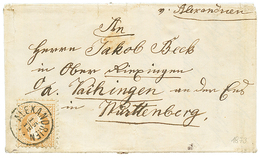 v. Alexandrien
An
Herrn Jakob Beck
in Ober Riexingen
a/d. Vaihingen an der Enz
in Württemberg,
ALEXAND